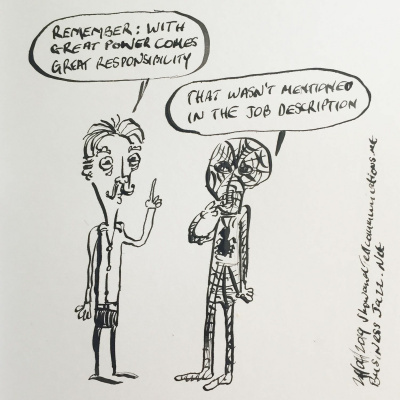 REMEMBER: WITH
GREAT POWER COMES
GREAT RESPONSIBILITY
THAT WASN'T MENTIONED
IN THE JOB DESCRIPTION
2019
BUSINESS JAZZ. NET